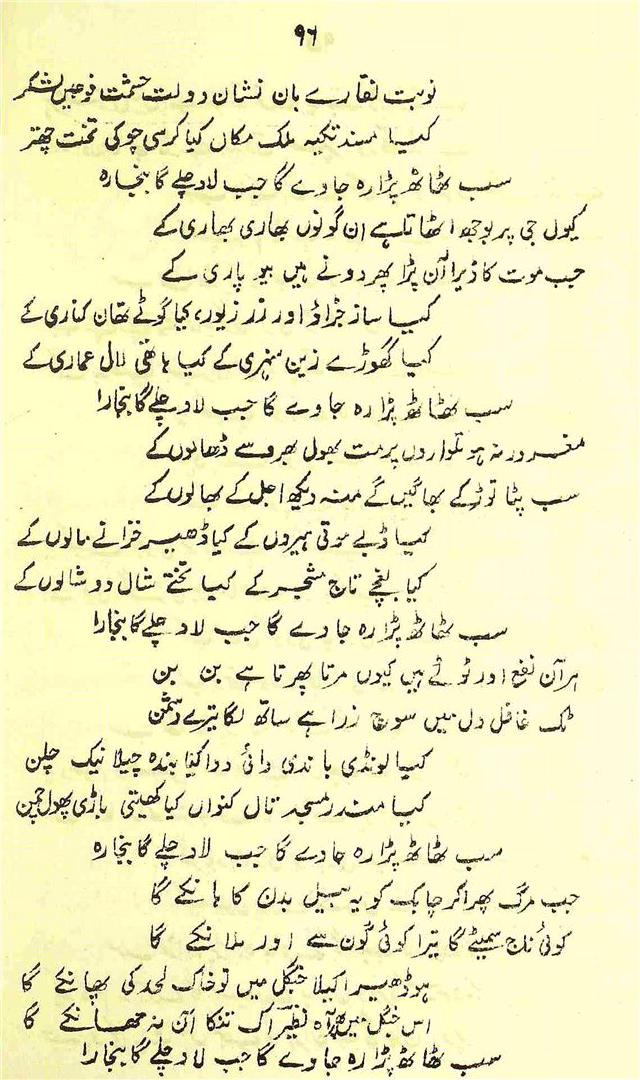 ۹۶
نوبت نقارے بان نشان دولت حشمت فوجیں لشکر
کیا مسند تکیہ ملک مکاں کیا کرسی چوکی تخت چھتر
سب ٹھاٹھ پڑا رہ جاوے گا جب لاد چلے گا بنجارہ
کیوں جی پر بوجھ اٹھاتا ہے ان گونوں بھاری بھاری کے
جب موت کا ڈیرا آن پڑا پھر دونے ہیں بیوپاری کے
کیا ساز جڑاؤ اور زر زیور، کیا گوٹے تھان کناری کے
کیا گھوڑے زین سنہری کے کیا ہاتھی لال عماری کے
سب ٹھاٹھ پڑا رہ جاوے گا جب لاد چلے گا بنجارا
مغرور نہ ہو تلواروں پر مت بھول بھروسے ڈھالوں کے
سب پٹا توڑ کے بھاگیں گے منہ دیکھ اجل کے بھالوں کے
کیا ڈبے موتی ہیروں کے کیا ڈھیر خزانے مالوں کے
کیا بقچے تاج مشجر کے کیا تختے شال دوشالوں کے
سب ٹھاٹھ پڑا رہ جاوے گا جب لاد چلے گا بنجارا
ہر آن نفع اور ٹوٹے میں کیوں مرتا پھرتا ہے بن بن
ٹک غافل دل میں سوچ ذرا ہے ساتھ لگا تیرے دشمن
کیا لونڈی باندی دائی ددا کیا بندہ چیلا نیک چلن
کیا مندر مسجد تال کنواں کیا کھیتی باڑی پھول چمن
سب ٹھاٹھ پڑا رہ جاوے گا جب لاد چلے گا بنجارہ
جب مرگ پھرا کر چابک کو یہ بیل بدن کا ہانکے گا
کوئی ناج سمیٹے گا تیرا کوئی گون سے اور ٹانکے گا
ہو ڈھیر اکیلا جنگل میں تو خاک لحد کی پھانکے گا
اس جنگل میں پھر آہ نظیرؔ اک تنکا آن نہ جھانکے گا
سب ٹھاٹھ پڑا رہ جاوے گا جب لاد چلے گا بنجارا